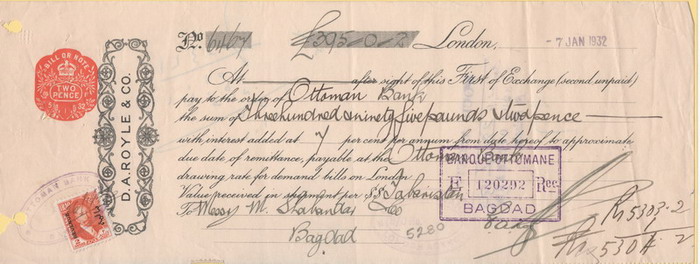 No. 6467 £395-0-2 London, -7 JAN 1932
BILL OR NOTE
TWO PENCE
D. A. ROYLE & CO.
At after sight of this First of Exchange (second unpaid)
pay to the order of Ottoman Bank
the sum of Threehundred ninety five pounds & twopence
with interest added at 7 per cent per annum from date hereof to approximate
due date of remittance, payable at the Ottoman Bank
drawing rate for demand bills on London
Value received in shipment per SS Tabaristan
To Messrs M. Shabandar & Co
Bagdad
BANQUE OTTOMANE
E 120292 Rec.
BAGDAD
5280
Rs 5303-2
Rs 5304-2